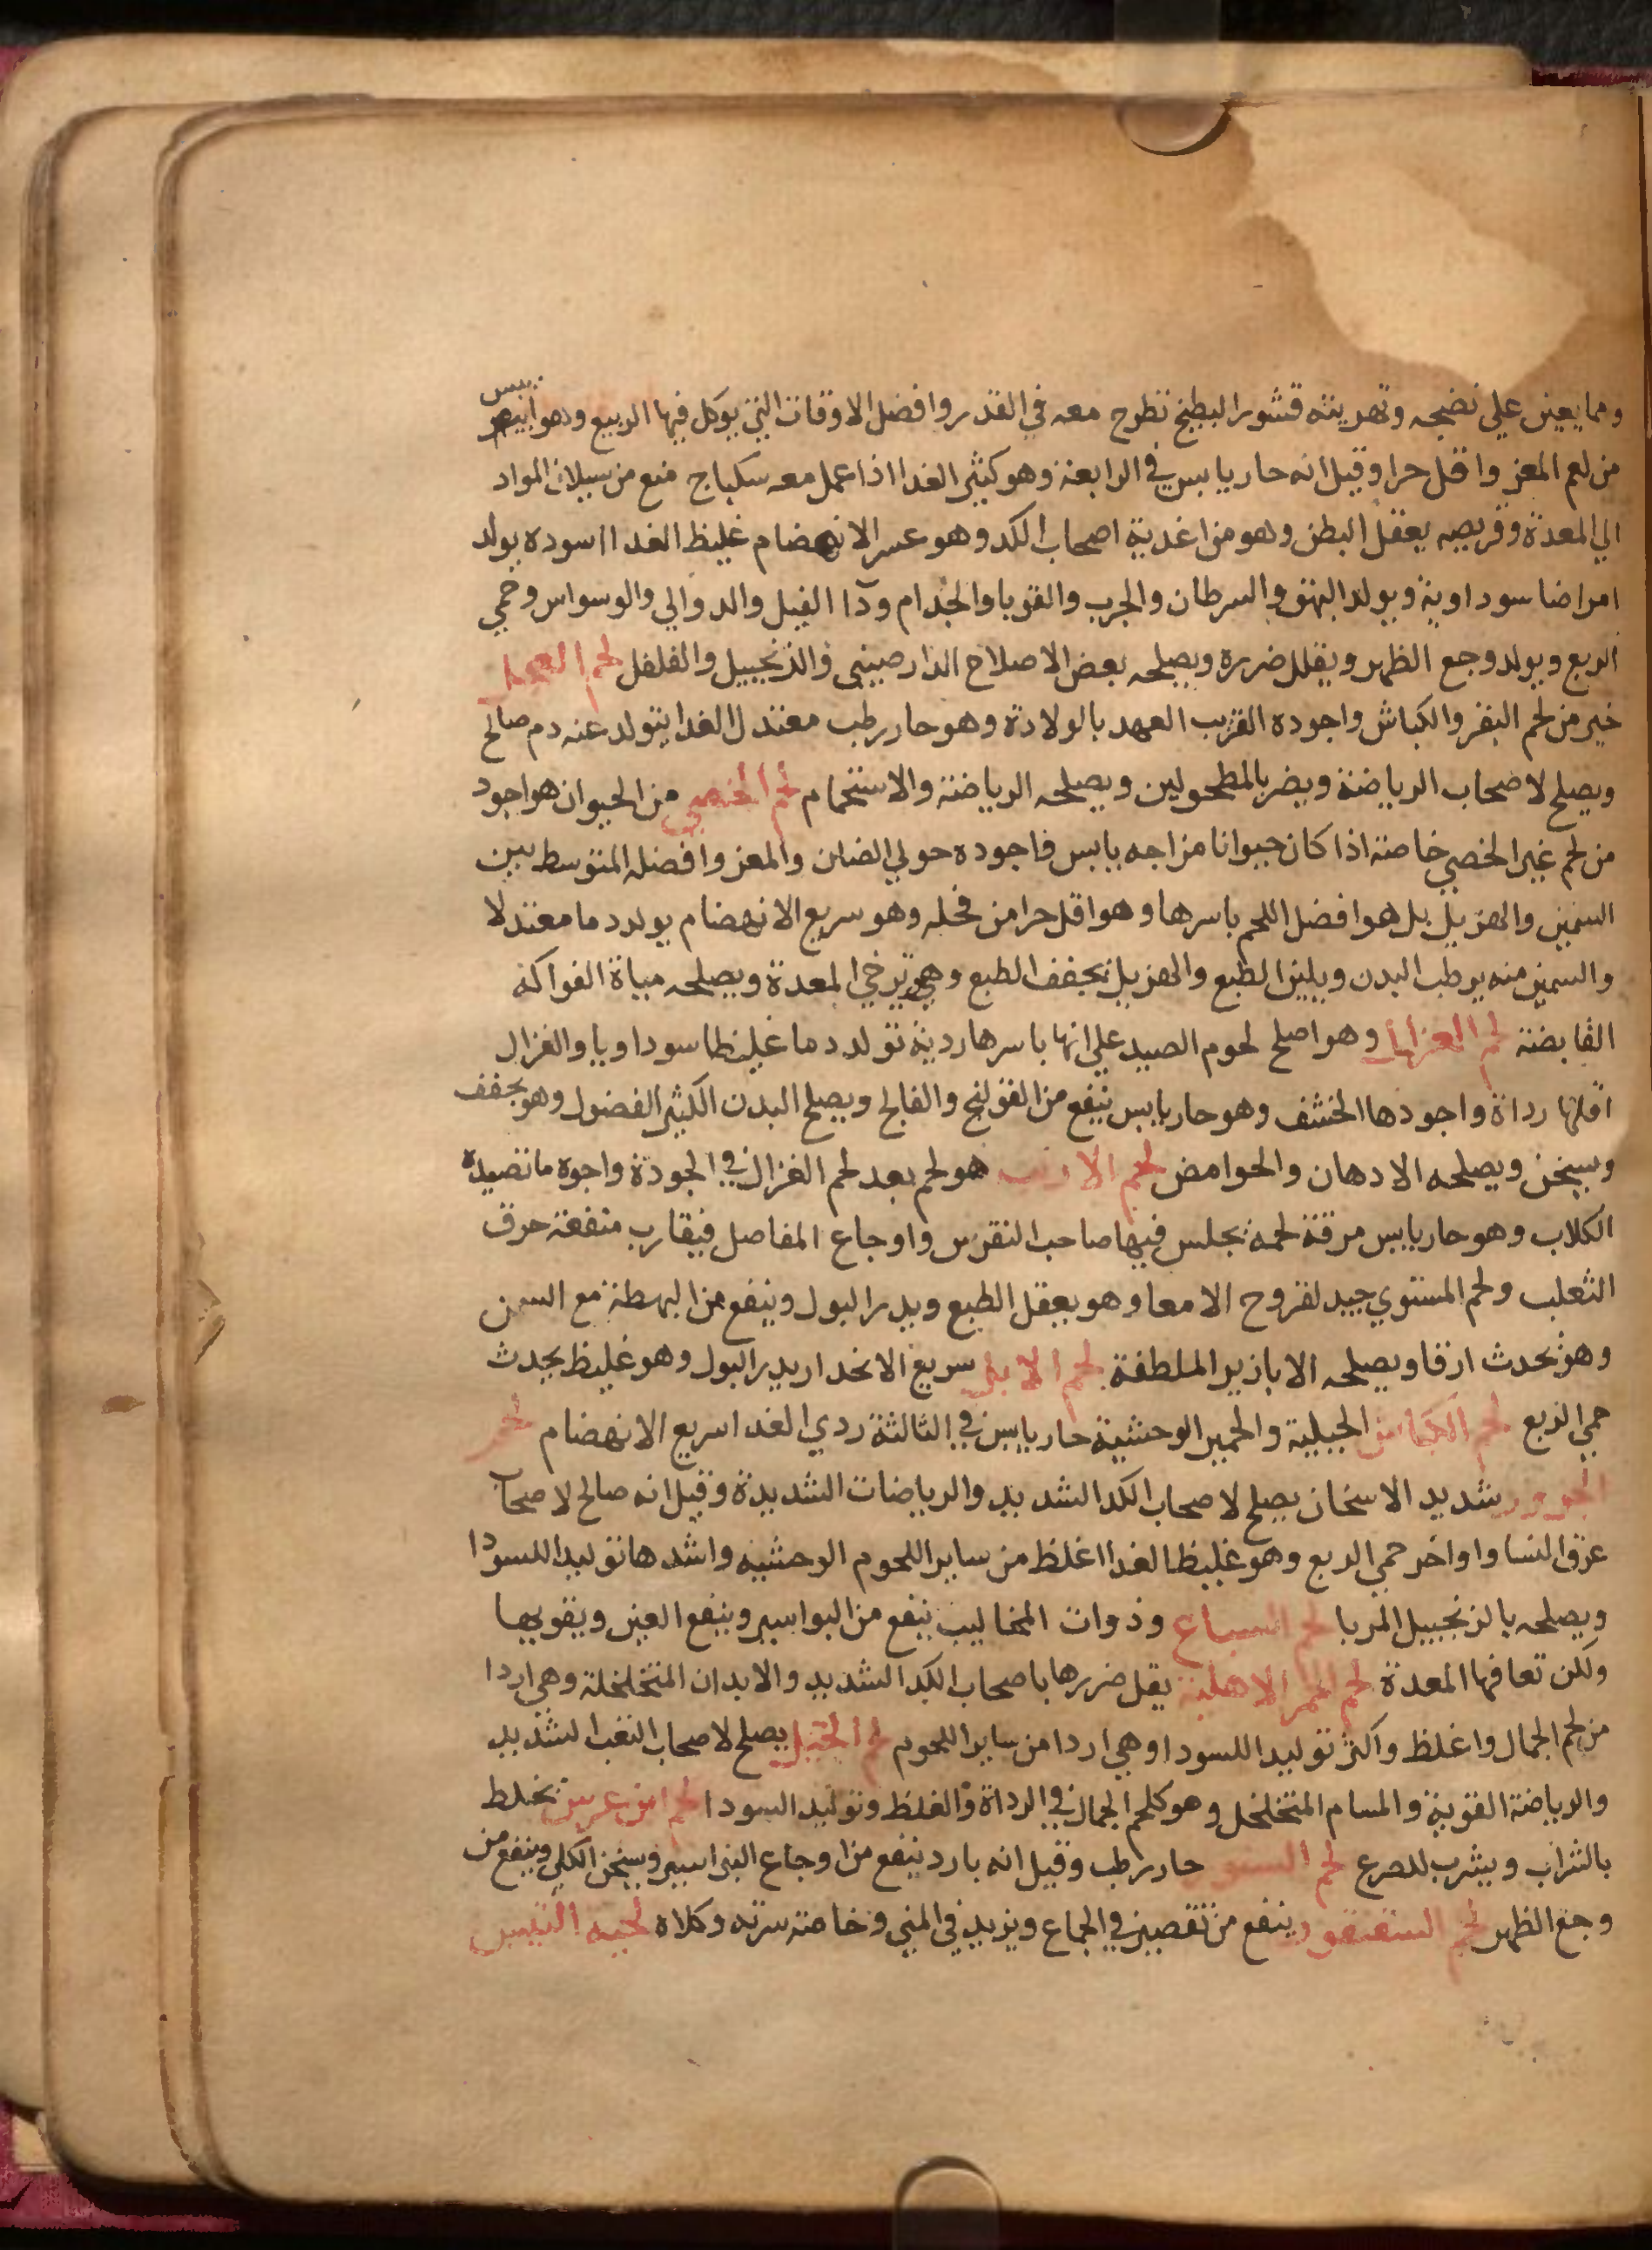 ومما يعين علي نضجه وتهريته قشور البطيخ تطرح معه في القدر وافضل الاوقات التي يوكل فيها الربيع وهو ايبس
من لحم المعز واقل حرا وقيل انه حار يابس في الرابعة وهو كثير الغدا اذا عمل معه سكباج منع من سيلان المواد
الي المعدة وقريصه يعقل البطن وهو من اغدية اصحاب الكد وهو عسر الانهضام غليظ الغدا اسوده يولد
امراضا سوداوية ويولد البهق والسرطان والجرب والقوبا والجدام ودا الفيل والدوالي والوسواس وحمي
الربع ويولد وجع الظهر ويقلل ضرره ويصلحه بعض الاصلاح الدارصيني والزنجبيل والفلفل لحم العجل
خير من لحم البقر والكباش واجوده القريب العهد بالولادة وهو حار رطب معتدل الغدا يتولد عنه دم صالح
ويصلح لاصحاب الرياضة ويضر بالمطحولين ويصلحه الرياضة والاستحمام لحم الخصي من الحيوان هو اجود
من لحم غير الخصي خاصة اذا كان حيوانا مزاجه يابس فاجوده حولي الضان والمعز وافضله المتوسط بين
السمين والهزيل بل هو افضل اللحم باسرها وهو اقل حرا من فحله وهو سريع الانهضام يولد دما معتدلا
والسمين منه يرطب البدن ويلين الطبع والهزيل يجفف الطبع وهي ترخي المعدة ويصلحه مياة الفواكه
القابضة لحم الغزال وهو اصلح لحوم الصيد علي انها باسرها ردية تولد دما غليظا سوداويا والغزال
اقلها رداة واجودها الخشف وهو حار يابس ينفع من القولنج والفالج ويصلح البدن الكثير الفضول وهو يجفف
ويسخن ويصلحه الادهان والحوامض لحم الارنب هو لحم بعد لحم الغزال في الجودة واجوه ما تصيده
الكلاب وهو حار يابس مرقة لحمه يجلس فيها صاحب النقرس واوجاع المفاصل فيقارب منفعة مرق
الثعلب ولحم المستوي جيد لقروح الامعا وهو يعقل الطبع ويدر البول وينفع من البهطة مع السمن
وهو يحدث ارقا ويصلحه الابازير الملطفة لحم الايل سريع الانحدار يدر البول وهو غليظ يحدث
حمي الربع لحم الكباش الجبلية والحمير الوحشية حار يابس في الثالثة ردي الغدا سريع الانهضام لحم
الجزور شديد الاسخان يصلح لاصحاب الكد الشديد والرياضات الشديدة وقيل انه صالح لاصحاب
عرق النسا واواخر حمي الربع وهو غليظ الغدا اغلظ من ساير اللحوم الوحشيه واشدها توليدا للسودا
ويصلحه بالزنجبيل المربا لحم السباع وذوات المخاليب ينفع من البواسير وينفع العين ويقويها
ولكن تعافها المعدة لحم الحمر الاهلية يقل ضررها باصحاب الكد الشديد والابدان المتخلخلة وهي اردا
من لحم الجمال واغلظ واكثر توليدا للسودا وهي اردا من ساير اللحوم لحم الخيل يصلح لاصحاب التعب الشديد
والرياضة القوية والمسام المتخلخل وهو كلحم الجمال في الرداة والغلظ وتوليد السودا لحم ابن عرس يخلط
بالشراب ويشرب للصرع لحم السنور حار رطب وقيل انه بارد ينفع من اوجاع البواسير ويسخن الكلي وينفع من
وجع الظهر لحم السقنقور ينفع من تقصير في الجماع ويزيد في المني وخاصة سرته وكلاه لحية التيس